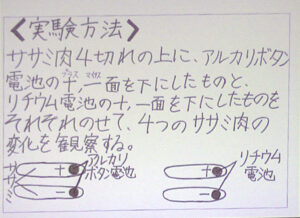 〈実験方法〉
ササミ肉4切れの上に、アルカリボタン
電池の十プラス、一マイナス面を下にしたものと、
リチウム電池の十,一面を下にしたものを
それぞれのせて、4つのササミ肉の
変化を観察する。
ササミ
十
一
アルカリ
ボタン電池
十
一
リチウム
電池